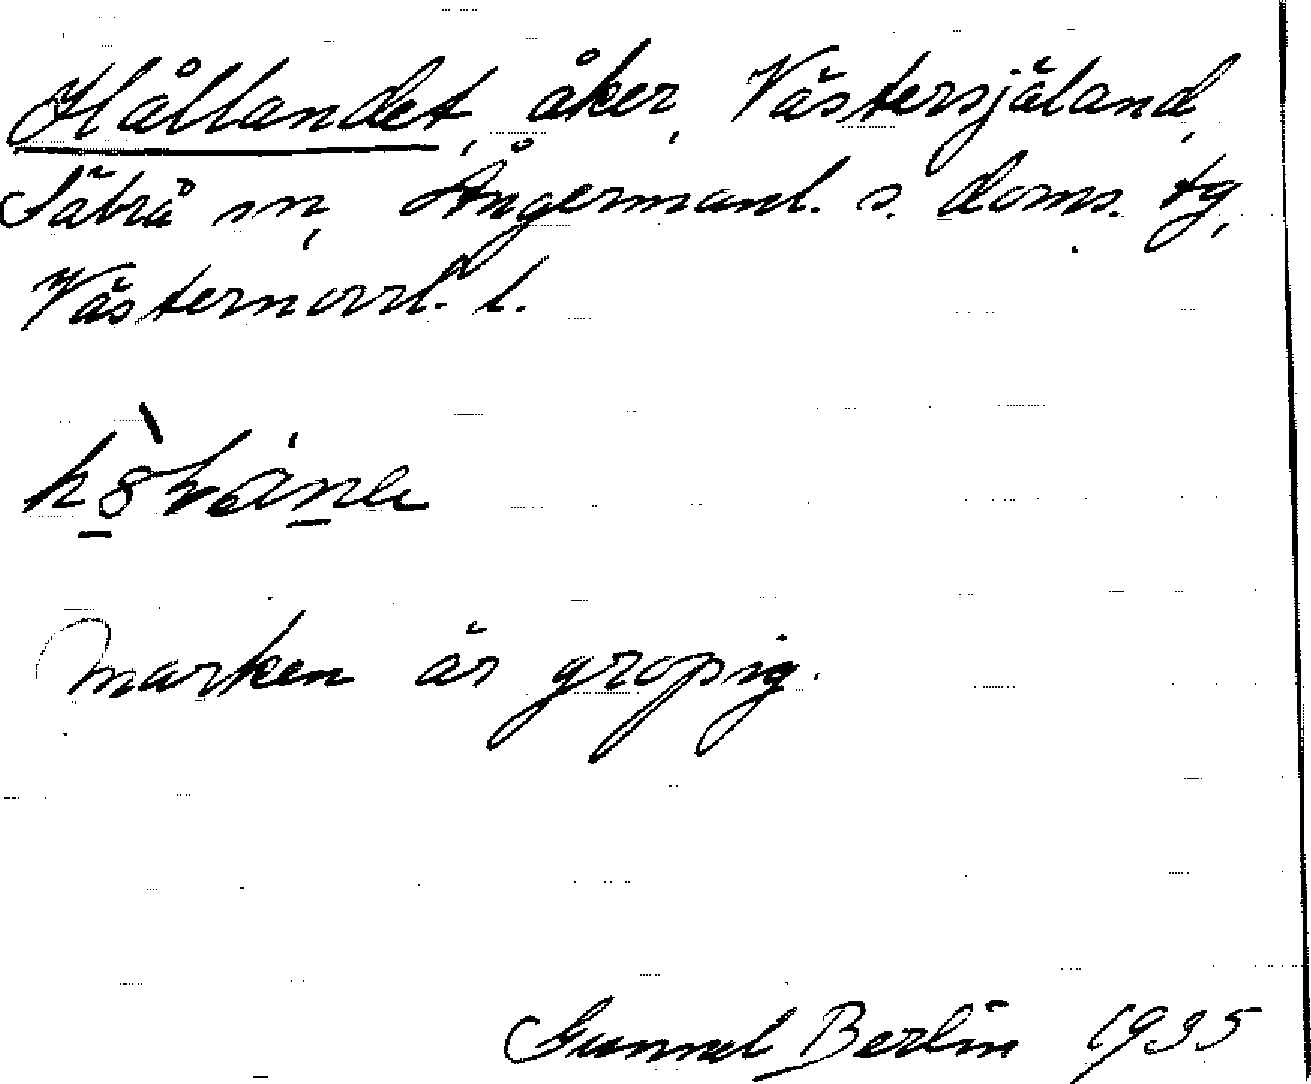 Hållandet, åker, Västersjäland,
Säbrå sn, Ångermanl. s. doms. tg,
Västernorrl. l.
Marken är gropig.
Gunnel Berlin 1935